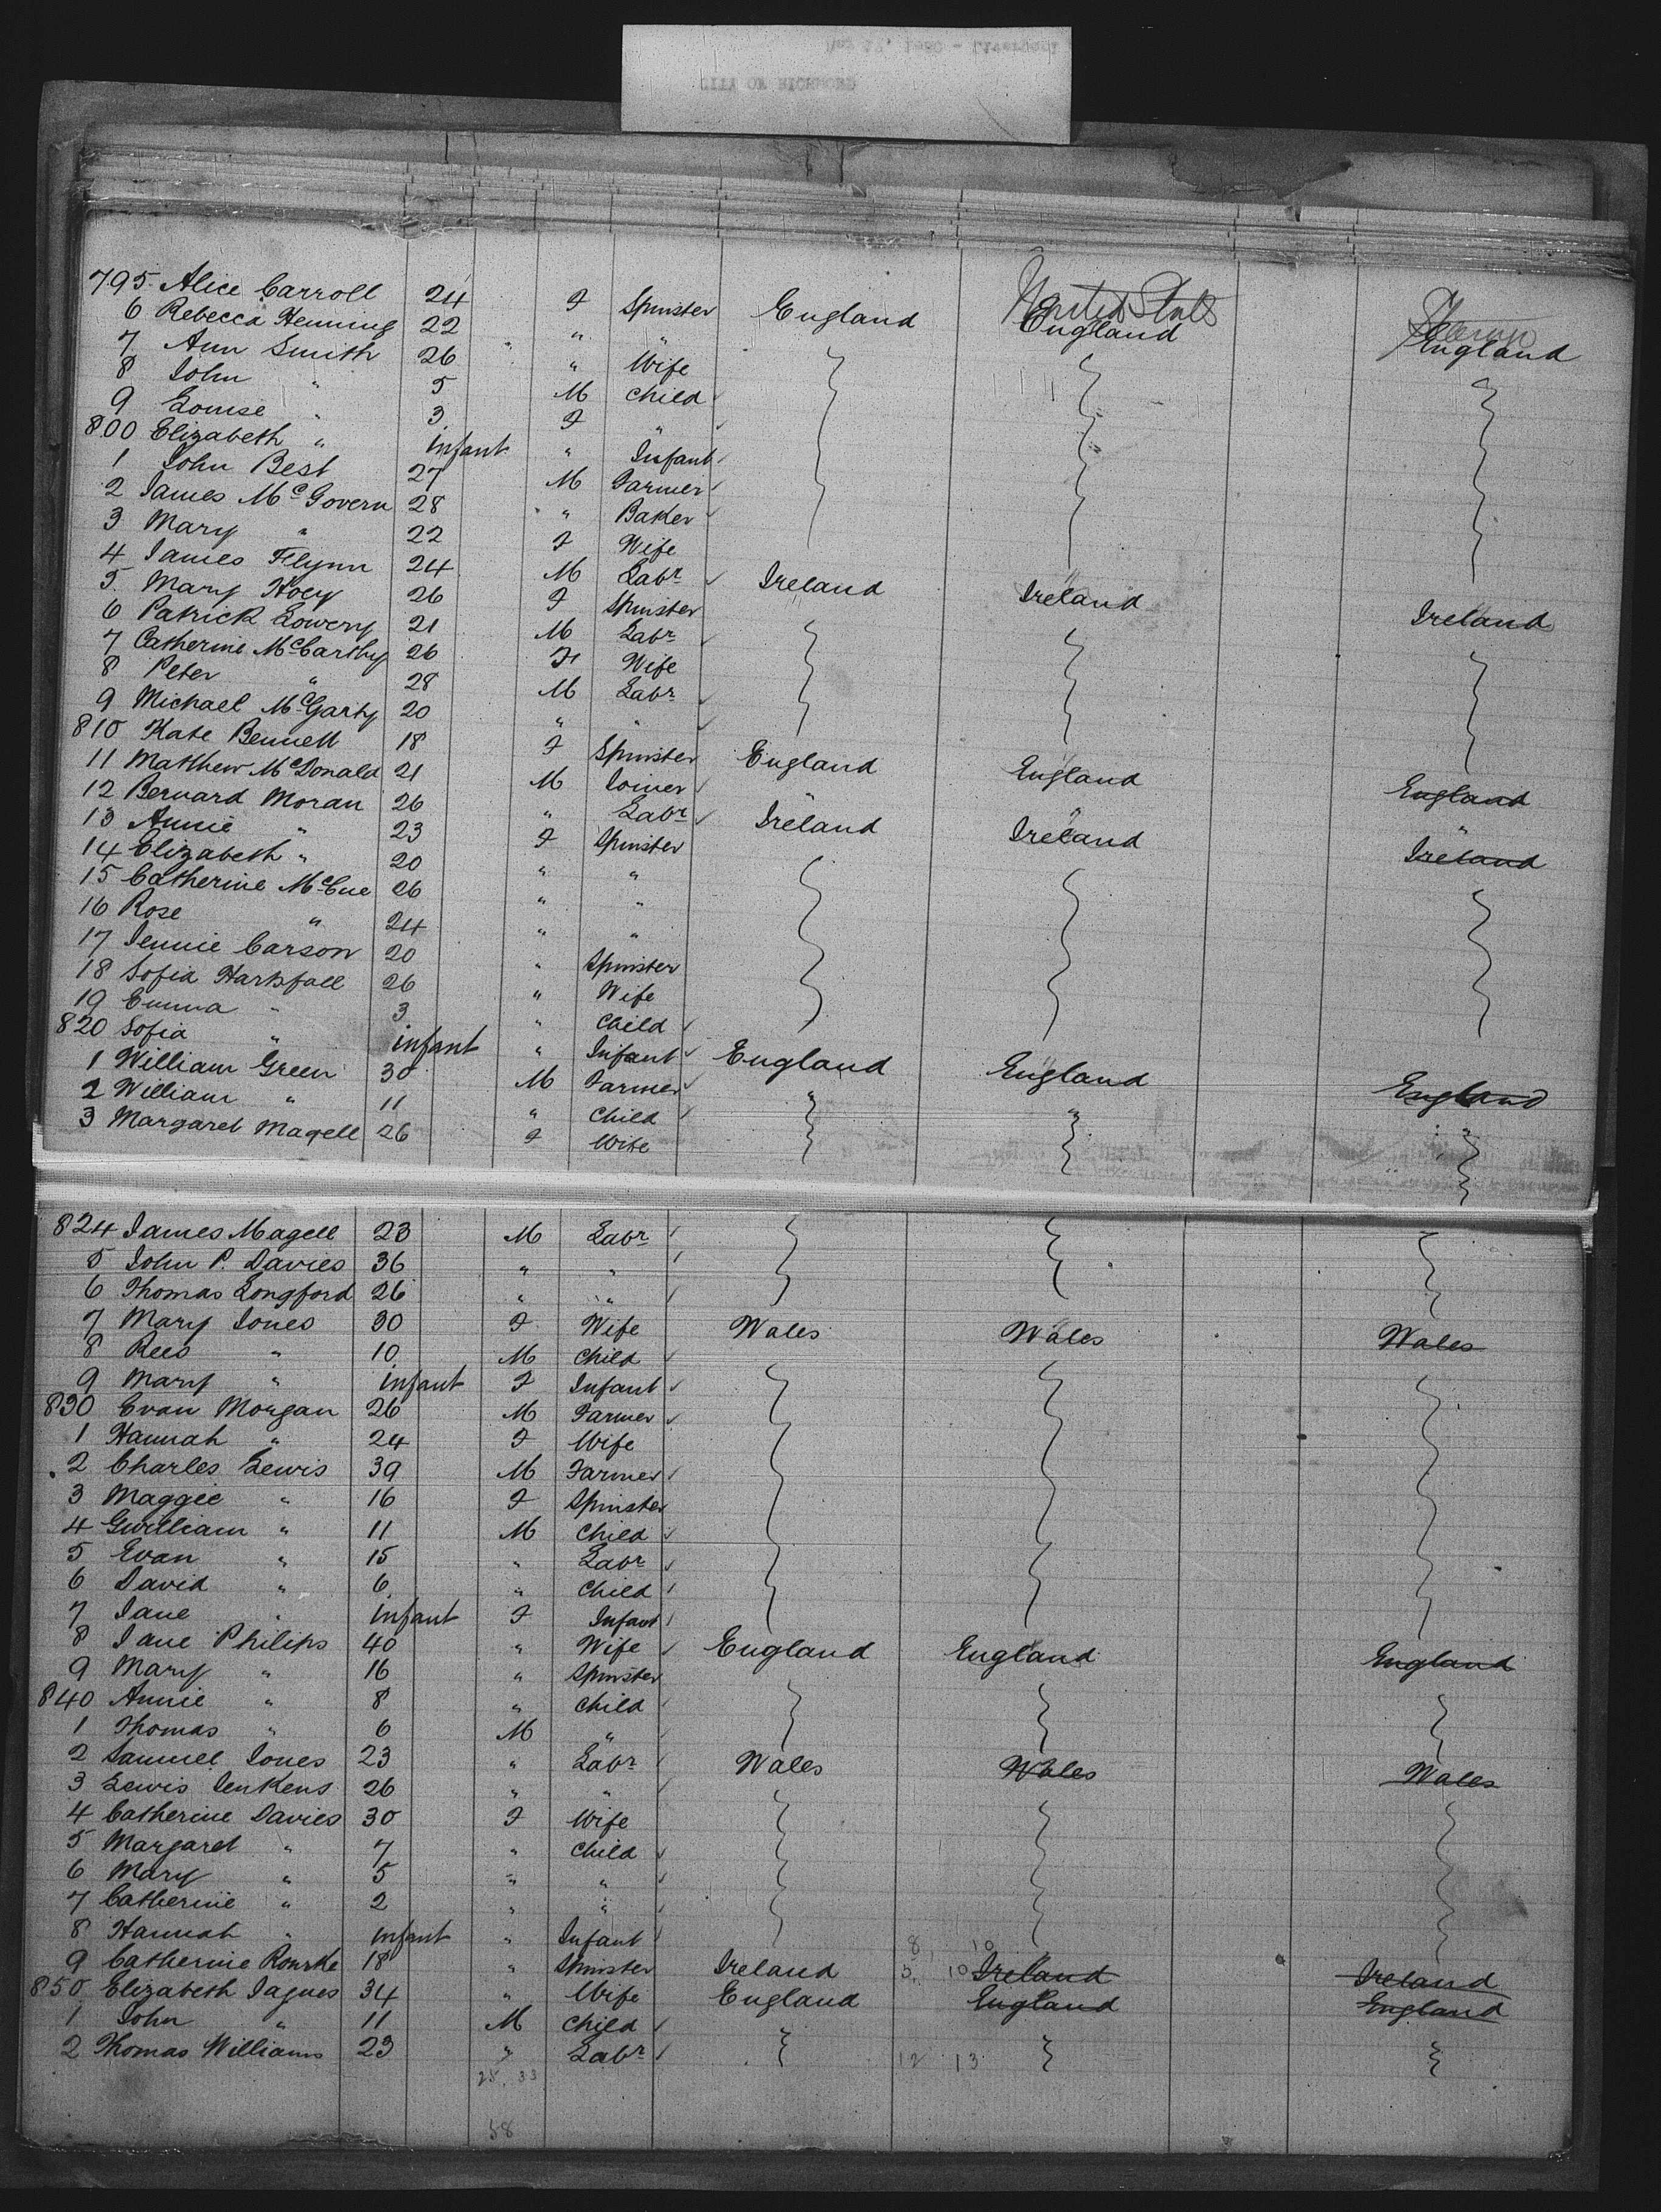 795 Alice Carroll 24 F Spinster England United States
6 Rebecca Henning 22 " " " England England
7 Ann Smith 26 " Wife
8 John " 5 M Child
9 Louise " 3 F "
800 Elizabeth " infant " Infant
1 John Best 27 M Farmer
2 James McGovern 28 " Baker
3 Mary " 22 F Wife
4 James Flynn 24 M Labr Ireland Ireland Ireland
5 Mary Hoey 26 F Spinster
6 Patrick Lowery 21 M Labr
7 Catherine McCarthy 26 F Wife
8 Peter " 28 M Labr
9 Michael McGarty 20 " "
810 Kate Bennett 18 F Spinster England England England
11 Matthew McDonald 21 M Joiner " " "
12 Bernard Moran 26 " Labr Ireland Ireland Ireland
13 Annie " 23 F Spinster
14 Elizabeth " 20 " "
15 Catherine McCue 26 " "
16 Rose " 24 " "
17 Jennie Carson 20 " Spinster
18 Sofia 26 " Wife
19 Emma " 3 " Child
820 Sofia " infant " Infant England England England
1 William Green 30 M Farmer " " "
2 William " 11 " Child
3 Margaret Magell 26 F Wife
824 James Magell 23 M Labr
5 John P. Davies 36 " "
6 Thomas Longford 26 " "
7 Mary Jones 30 F Wife Wales Wales Wales
8 Rees " 10 M Child
9 Mary " infant F Infant
830 Evan Morgan 26 M Farmer
1 Hannah " 24 F Wife
2 Charles Lewis 39 M Farmer
3 Maggie " 16 F Spinster
4 Gwilliam " 11 M Child
5 Evan " 15 " Labr
6 David " 6 " Child
7 Jane " infant F Infant
8 Jane Philips 40 " Wife England England England
9 Mary " 16 " Spinster
840 Annie " 8 " Child
1 Thomas " 6 M "
2 Samuel Jones 23 " Labr Wales Wales Wales
3 Lewis Jenkens 26 " "
4 Catherine Davies 30 F Wife
5 Margaret " 7 " Child
6 Mary " 5 " "
7 Catherine " 2 " "
8 Hannah " infant " Infant 8 10
9 Catherine Rourke 18 " Spinster Ireland 5 10 Ireland Ireland
850 Elizabeth Jaques 34 " Wife England England England
1 John " 11 M Child
2 Thomas Williams 23 " Labr 12 13
25 33
58